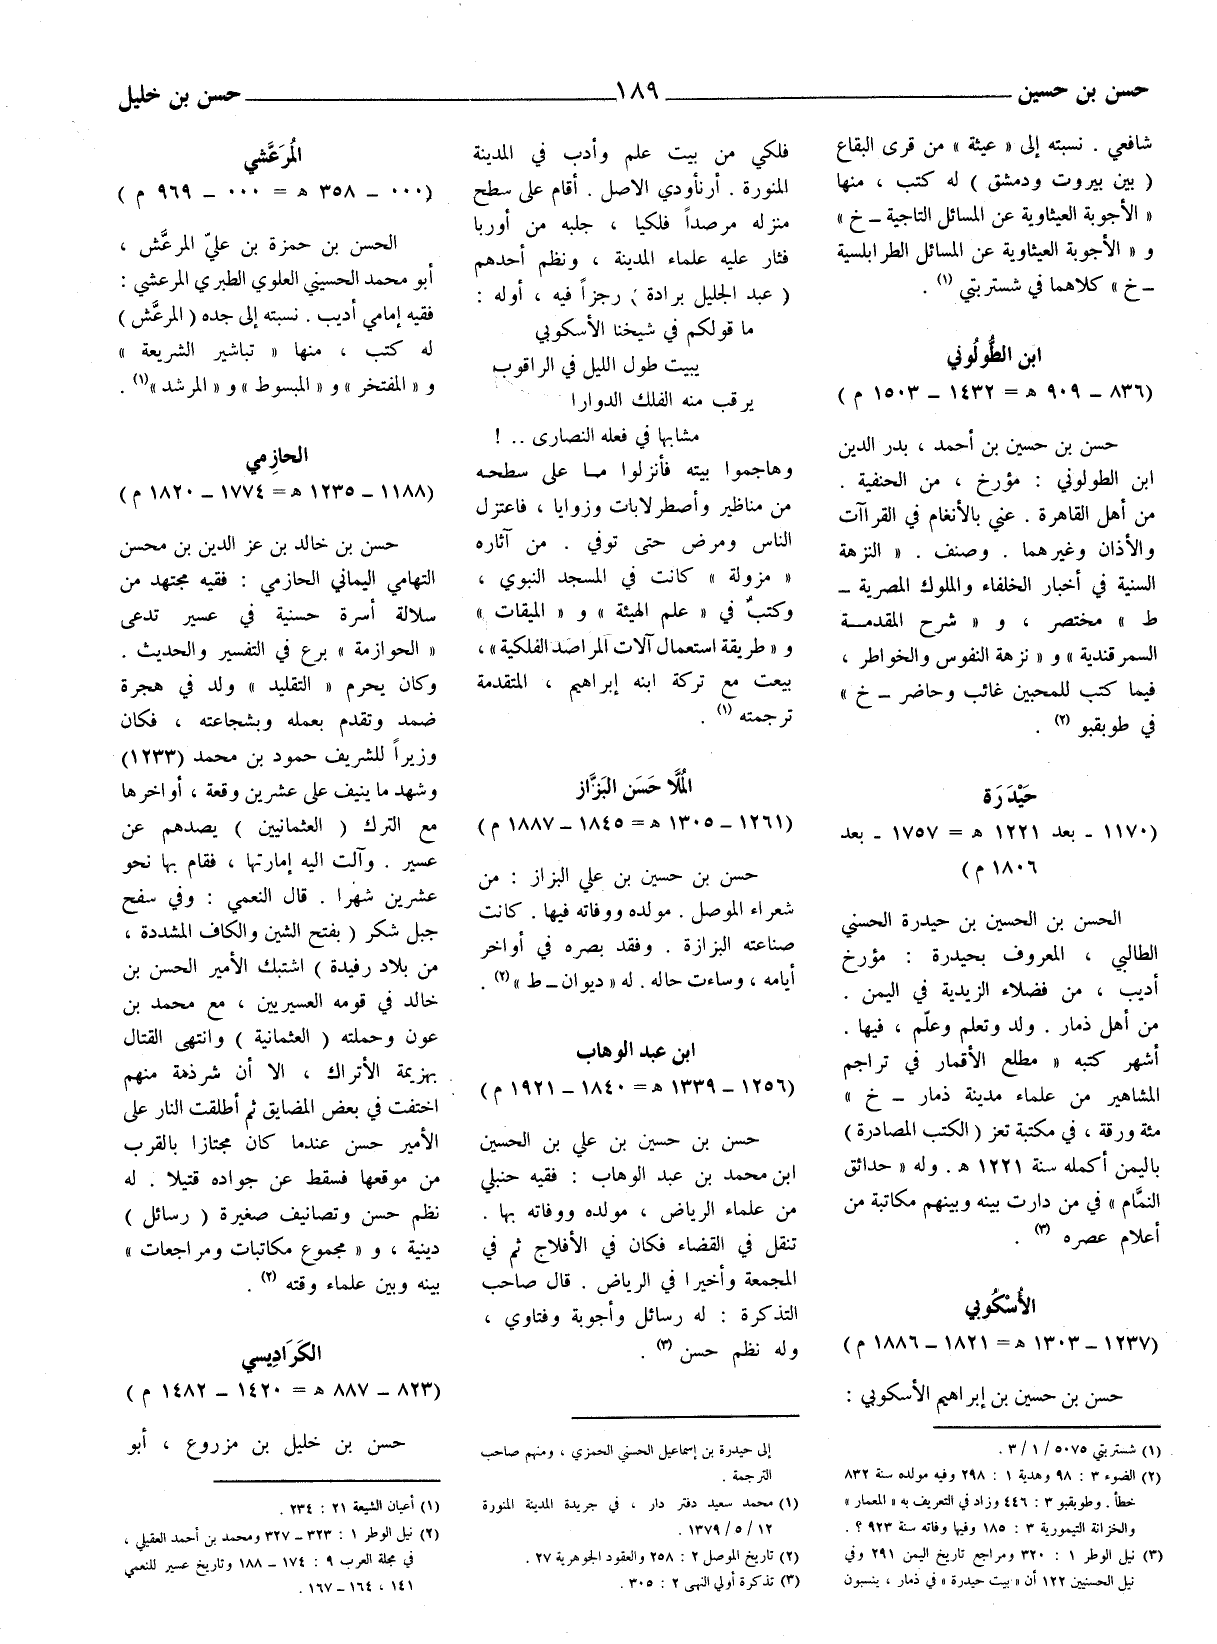 حسن بن حسين ١٨٩ حسن بن خليل
شافعي . نسبته إلى « عيثة » من قرى البقاع
( بين بيروت ودمشق ) له كتب ، منها
« الأجوبة العيثاوية عن المسائل التاجية ــ خ »
و « الأجوبة العيثاوية عن المسائل الطرابلسية
ــ خ » كلاهما في شستربتي (١) .
ابن الطُّولُوني
(٨٣٦ ــ ٩٠٩ ه = ١٤٣٢ ــ ١٥٠٣ م )
حسن بن حسين بن أحمد ، بدر الدين
ابن الطولوني : مؤرخ ، من الحنفية .
من أهل القاهرة . عني بالأنغام في القراآت
والأذان وغيرهما . وصنف . « النزهة
السنية في أخبار الخلفاء والملوك المصرية ــ
ط » مختصر ، و « شرح المقدمـــة
السمرقندية » و « نزهة النفوس والخواطر ،
فيما كتب للمحبين غائب وحاضر ــ خ »
في طوبقبو (٢) .
حَيْدَرَة
(١١٧٠ - بعد ١٢٢١ ه = ١٧٥٧ - بعد
١٨٠٦ م )
الحسن بن الحسين بن حيدرة الحسني
الطالبي ، المعروف بحيدرة : مؤرخ
أديب ، من فضلاء الزيدية في اليمن .
من أهل ذمار . ولد وتعلم وعلّم ، فيها .
أشهر كتبه « مطلع الأقمار في تراجم
المشاهير من علماء مدينة ذمار ــ خ »
مئة ورقة ، في مكتبة تعز ( الكتب المصادرة )
باليمن أكمله سنة ١٢٢١ ه . وله « حدائق
النمَّام » في من دارت بينه وبينهم مكاتبة من
أعلام عصره (٣) .
الأُسْكُوبي
(١٢٣٧ ــ ١٣٠٣ ه = ١٨٢١ ــ ١٨٨٦ م )
حسن بن حسين بن إبراهيم الأسكوبي :
(١) شستربتي ٥٠٧٥ / ١ / ٣ .
(٢) الضوء ٣ : ٩٨ وهدية ١ : ٢٩٨ وفيه مولده سنة ٨٣٢
خطأ . وطوبقبو ٣ : ٤٤٦ وزاد في التعريف به « المعمار »
والخزانة التيمورية ٣ : ١٨٥ وفيها وفاته سنة ٩٢٣ ؟ .
(٣) نيل الوطر ١ : ٣٢٠ ومراجع تاريخ اليمن ٢٩١ وفي
نيل الحسنيين ١٢٢ أن « بيت حيدرة » في ذمار ، ينسبون
فلكي من بيت علم وأدب في المدينة
المنورة . أرنأودي الاصل . أقام على سطح
منزله مرصداً فلكيا ، جلبه من أوربا
فثار عليه علماء المدينة ، ونظم أحدهم
( عبد الجليل برادة ) رجزاً فيه ، أوله :
ما قولكم في شيخنا الأسكوبي
يبيت طول الليل في الراقوب
يرقب منه الفلك الدوارا
مشابها في فعله النصارى .. !
وهاجموا بيته فأنزلوا مــا على سطحـه
من مناظير وأصطرلابات وزوايا ، فاعتزل
الناس ومرض حتى توفي . من آثاره
« مزولة » كانت في المسجد النبوي ،
وكتبٌ في « علم الهيئة » و « الميقات »
و « طريقة استعمال آلات المراصد الفلكية » ،
بيعت مع تركة ابنه إبراهيم ، المتقدمة
ترجمته (١) .
المُلَّا حَسَن البَزَّاز
(١٢٦١ ــ ١٣٠٥ ه = ١٨٤٥ ــ ١٨٨٧ م )
حسن بن حسين بن علي البزاز : من
شعراء الموصل . مولده ووفاته فيها . كانت
صناعته البزازة . وفقد بصره في أواخر
أيامه ، وساءت حاله . له « ديوان ــ ط » (٢) .
ابن عبد الوهاب
(١٢٥٦ ــ ١٣٣٩ ه = ١٨٤٠ ــ ١٩٢١ م )
حسن بن حسين بن علي بن الحسين
ابن محمد بن عبد الوهاب : فقيه حنبلي
من علماء الرياض ، مولده ووفاته بها .
تنقل في القضاء فكان في الأفلاج ثم في
المجمعة وأخيرا في الرياض . قال صاحب
التذكرة : له رسائل وأجوبة وفتاوي ،
وله نظم حسن (٣) .
إلى حيدرة بن إسماعيل الحسني الحمزي ، ومنهم صاحب
الترجمة .
(١) محمد سعيد دفتر دار ، في جريدة المدينة المنورة
١٢ / ٥ / ١٣٧٩ .
(٢) تاريخ الموصل ٢ : ٢٥٨ والعقود الجوهرية ٢٧ .
(٣) تذكرة أولي النهى ٢ : ٣٠٥ .
المُرَعَّشي
(٠٠٠ ــ ٣٥٨ ه = ٠٠٠ ــ ٩٦٩ م )
الحسن بن حمزة بن عليّ المرعَّش ،
أبو محمد الحسيني العلوي الطبري المرعشي :
فقيه إمامي أديب . نسبته إلى جده ( المرعَّش )
له كتب ، منها « تباشير الشريعة »
و « المفتخر » و « المبسوط » و « المرشد » (١) .
الحازِمي
(١١٨٨ ــ ١٢٣٥ ه = ١٧٧٤ ــ ١٨٢٠ م )
حسن بن خالد بن عز الدين بن محسن
التهامي اليماني الحازمي : فقيه مجتهد من
سلالة أسرة حسنية في عسير تدعى
« الحوازمة » برع في التفسير والحديث .
وكان يحرم « التقليد » ولد في هجرة
ضمد وتقدم بعمله وبشجاعته ، فكان
وزيراً للشريف حمود بن محمد (١٢٣٣)
وشهد ما ينيف على عشرين وقعة ، أواخرها
مع الترك ( العثمانيين ) يصدهم عن
عسير . وآلت اليه إمارتها ، فقام بها نحو
عشرين شهرا . قال النعمي : وفي سفح
جبل شكر ( بفتح الشين والكاف المشددة ،
من بلاد رفيدة ) اشتبك الأمير الحسن بن
خالد في قومه العسيريين ، مع محمد بن
عون وحملته ( العثمانية ) وانتهى القتال
بهزيمة الأتراك ، الا أن شرذمة منهم
اختفت في بعض المضايق ثم أطلقت النار على
الأمير حسن عندما كان مجتازا بالقرب
من موقعها فسقط عن جواده قتيلا . له
نظم حسن وتصانيف صغيرة ( رسائل )
دينية ، و « مجموع مكاتبات ومراجعات »
بينه وبين علماء وقته (٢) .
الكَرَادِيسي
(٨٢٣ ــ ٨٨٧ ه = ١٤٢٠ ــ ١٤٨٢ م )
حسن بن خليل بن مزروع ، أبو
(١) أعيان الشيعة ٢١ : ٢٣٤ .
(٢) نيل الوطر ١ : ٣٢٣ ــ ٣٢٧ ومحمد بن أحمد العقيلي ،
في مجلة العرب ٩ : ١٧٤ ــ ١٨٨ وتاريخ عسير للنعمي
١٤١ ، ١٦٤ ــ ١٦٧ .